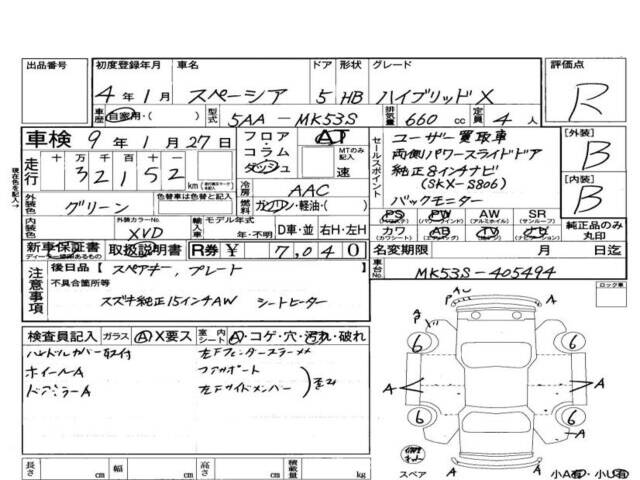 出品番号
初度登録年月
4年1月
車名
スペーシア
ドア
5
形状
HB
グレード
ハイブリッドX
評価点
R
車歴
自家用・( )
型式
5AA-MK53S
排気量
660 cc
定員
4人
車検 9年1月27日
走行
十万 万 千 百 十
32152
km
フロア
コラム
ダッシュ
AT
MTのみ記入
速
冷房
AAC
燃料
ガソリン・軽油・( )
外装色
グリーン
色替車は色替と記入
内装色
外装カラーNo.
XVD
輸入車
モデル年式
年・不明
D車・並
右H・左H
セールスポイント
ユーザー買取車
両側パワースライドドア
純正8インチナビ
(SKX-S806)
バックモニター
PS PW AW SR
(パワステ) (パワーウインド) (アルミホイル) (サンルーフ)
カワ AB TV ナビ
(カワシート) (エアバッグ)
純正品のみ丸印
[外装]
B
[内装]
B
現在色を記入
新車保証書
取扱説明書
R券 ¥ 7,040
名変期限 月 日迄
車台No.
MK53S-405494
注意事項
後日品【 スペアキー, プレート
不具合箇所等
スズキ純正15インチAW シートヒーター
ロック車
検査員記入
ガラス
A X要ス
室内シート
A・コゲ・穴・汚れ・破れ
ハンドルカバー取付
ホイールA
ドアミラーA
A
P
6
6
A
A
6
6
A
A
A
スペア
小A有・小U有
長さ cm
幅 cm
高さ cm
積載量 kg